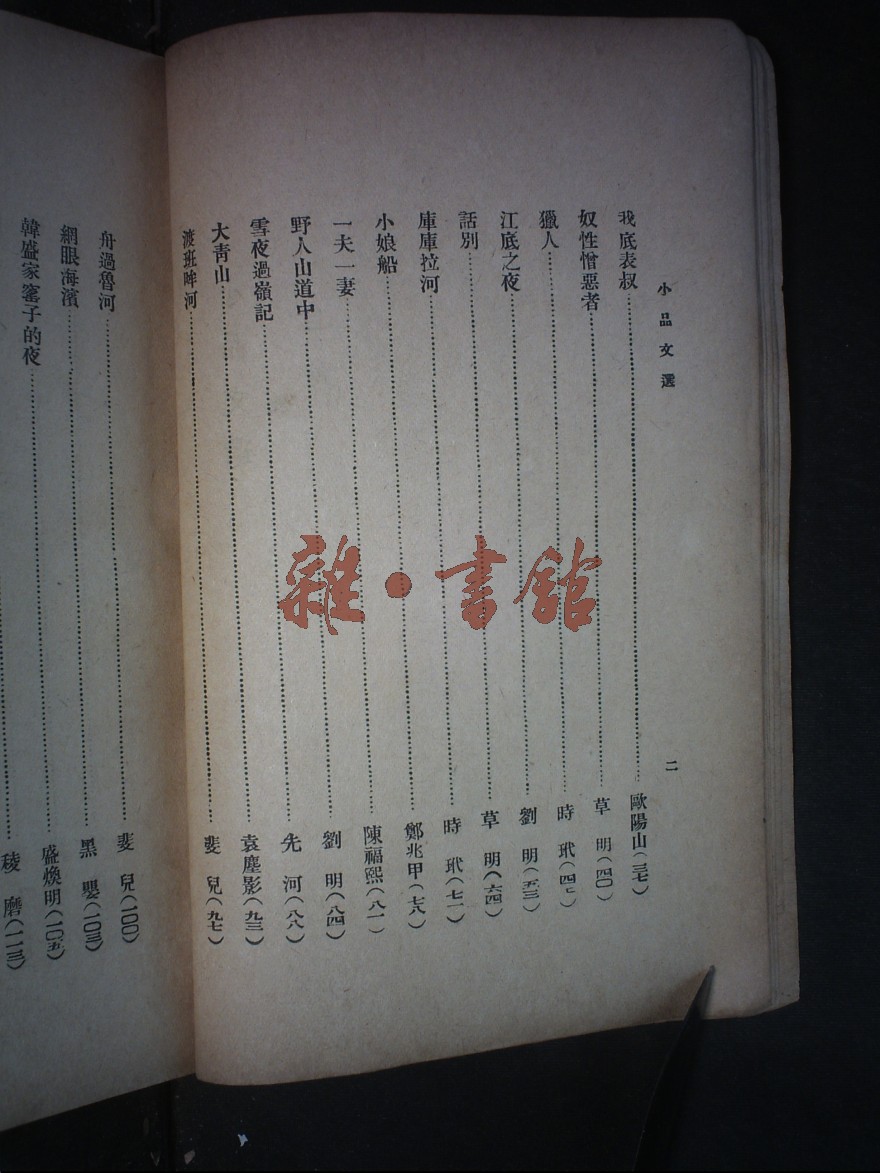 小品文選
二
我底表叔……歐陽山(三七)
奴性憎惡者……草明(四〇)
獵人……時玳(四七)
江底之夜……劉明(五三)
話別……草明(六四)
庫庫拉河……時玳(七一)
小娘船……鄭兆甲(七八)
一夫一妻……陳福熙(八一)
野人山道中……劉明(八四)
雪夜過嶺記……先河(八八)
大青山……袁塵影(九三)
渡班哞河……斐兒(九七)
舟過魯河……斐兒(一〇〇)
網眼海濱……黑嬰(一〇三)
韓盛家窰子的夜……盛煥明(一〇五)
稜磨(一一三)
雜·書館